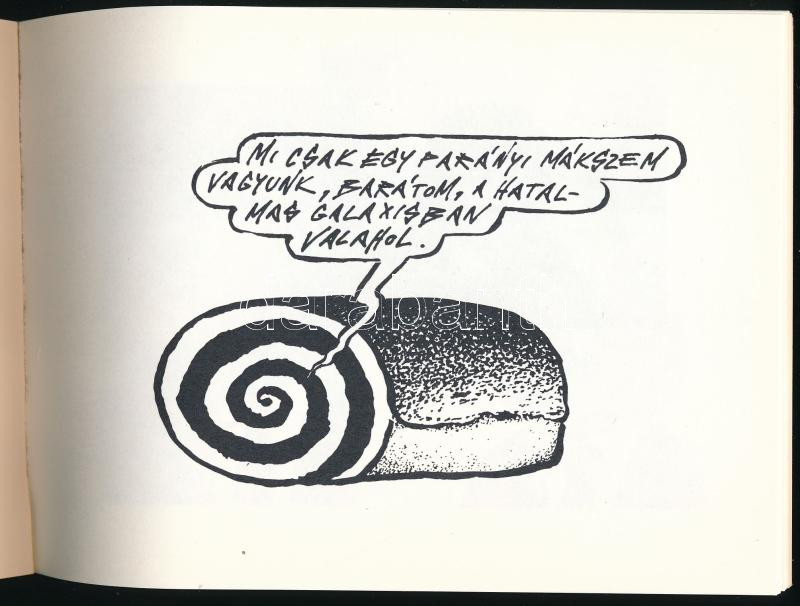 MI CSAK EGY PARÁNYI MÁKSZEM
VAGYUNK, BARÁTOM, A HATAL-
MAS GALAXISBAN
VALAHOL.
darabanth